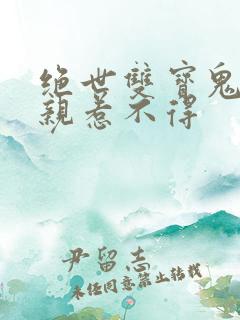 绝世雙寶鬼
親惹不得
尹留志
未经同意禁止转载